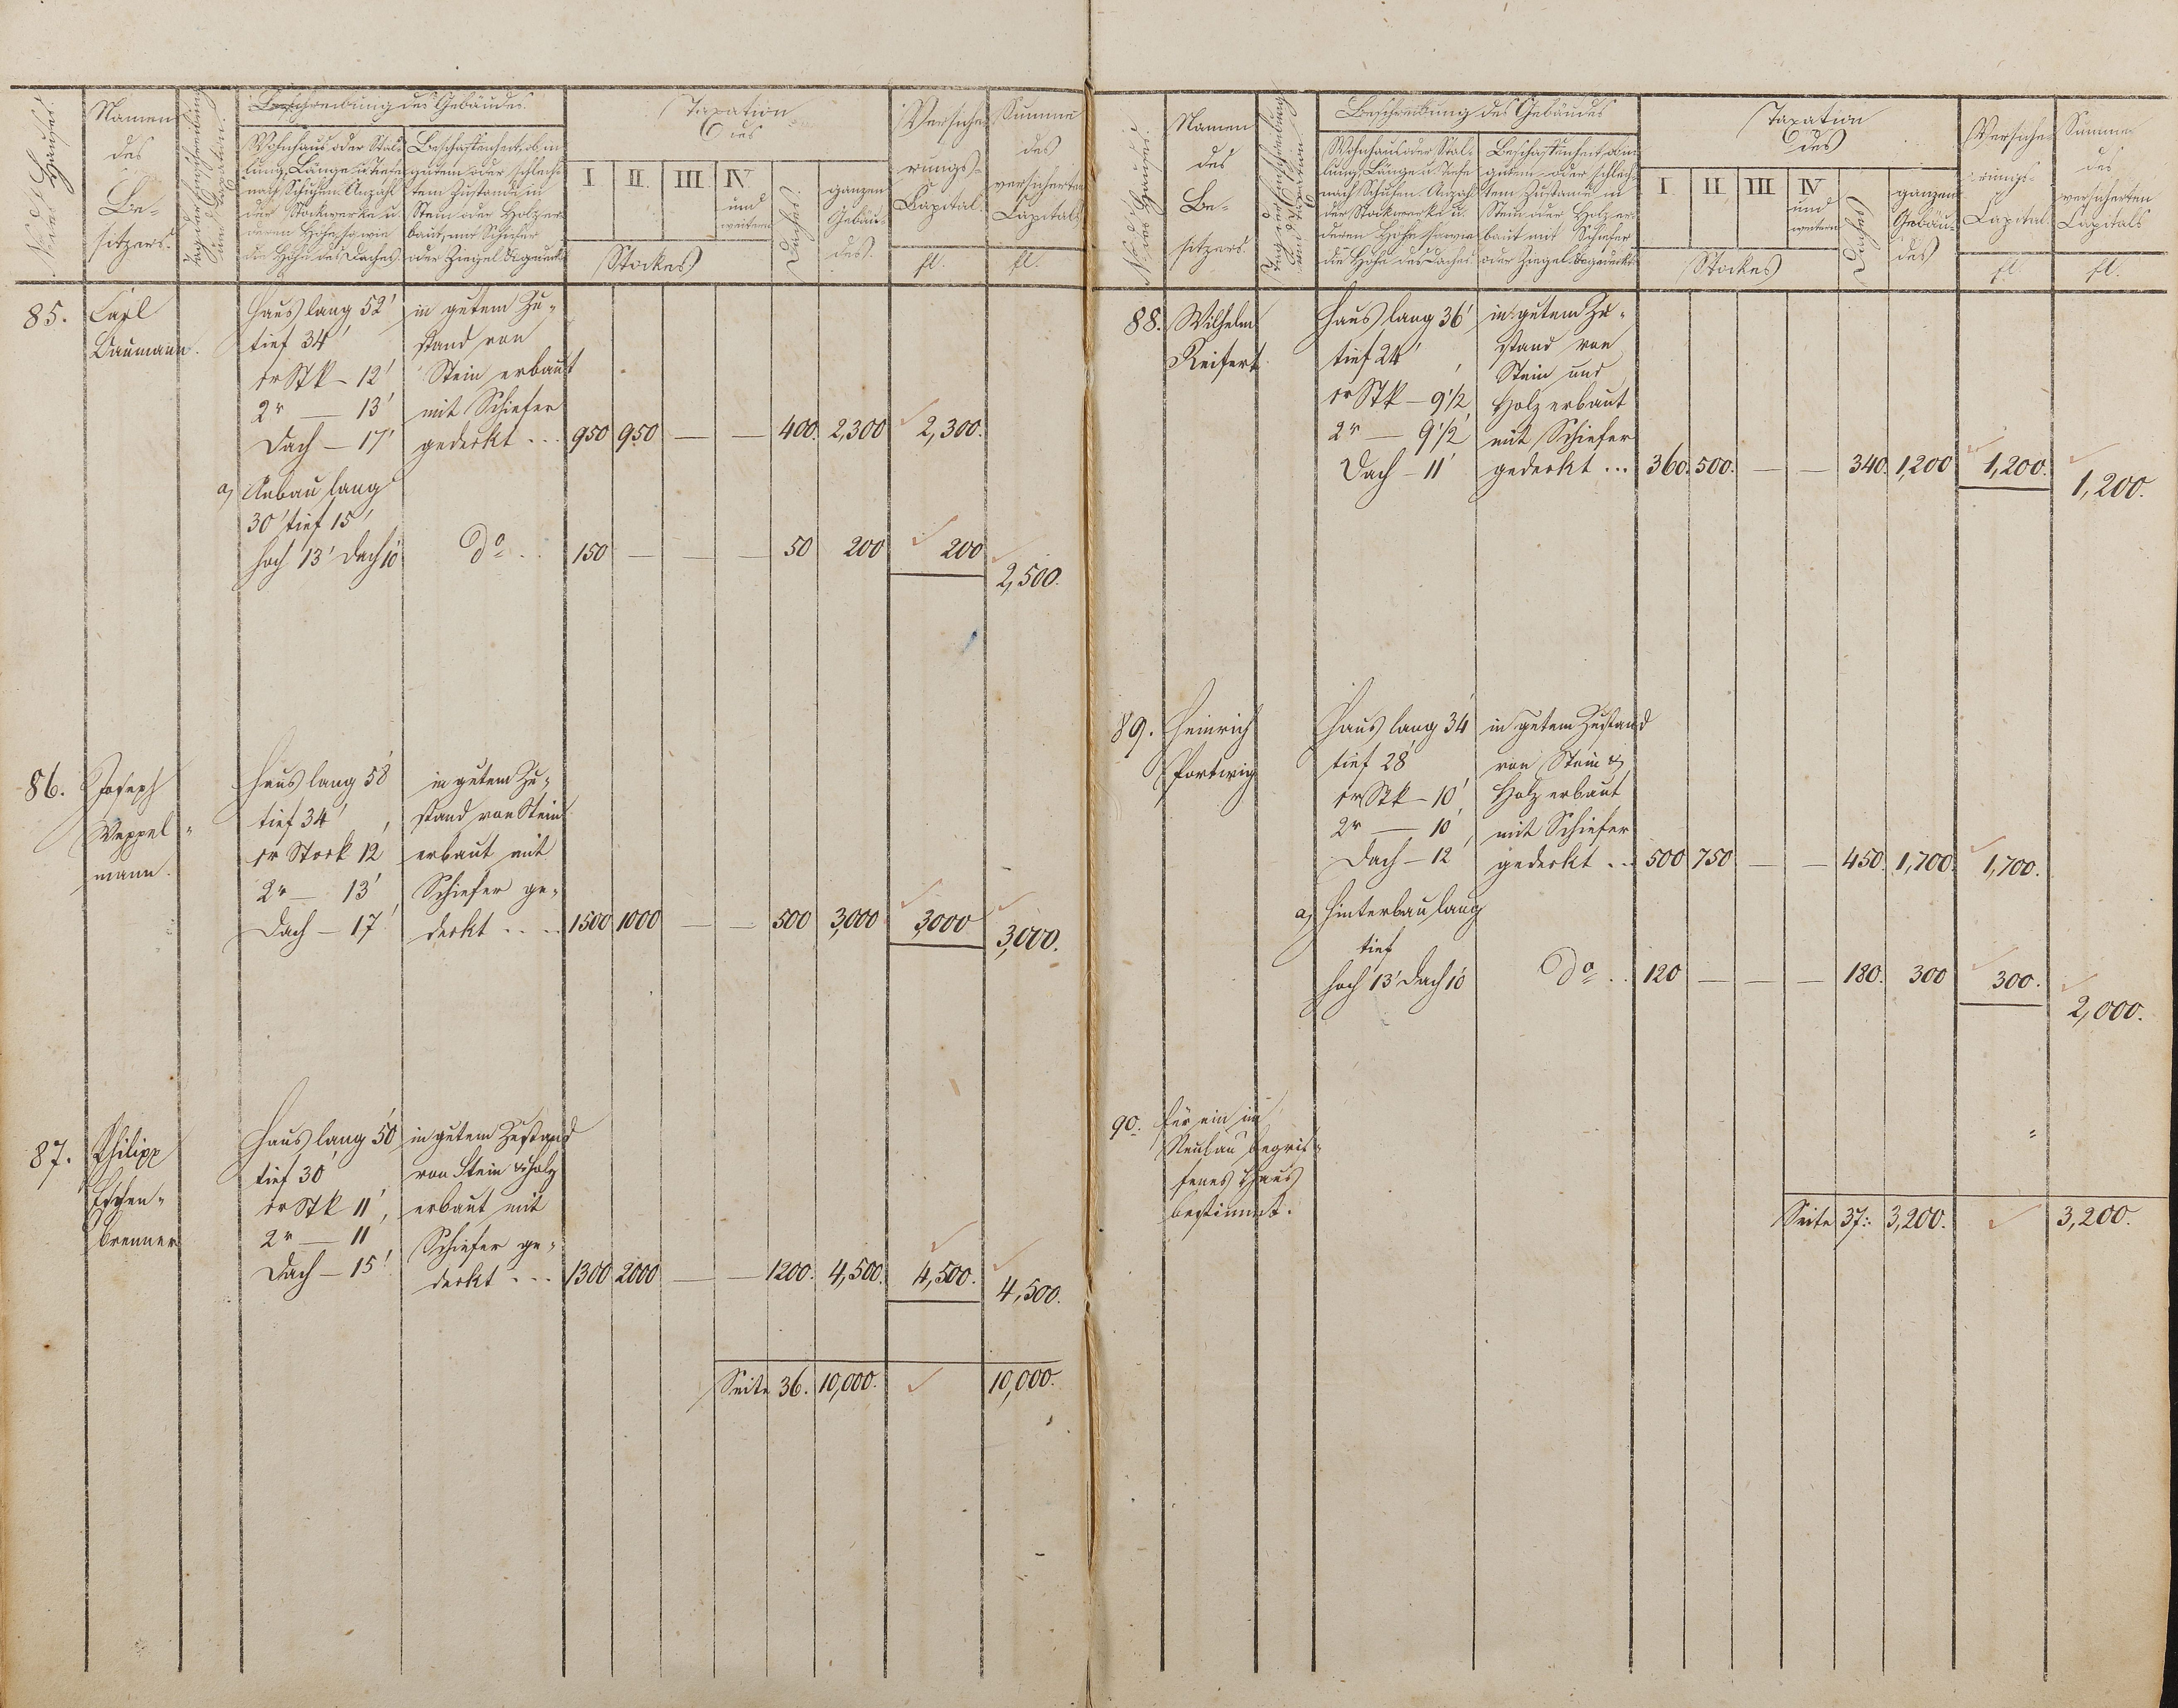 No des Hauses.
Namen
des
Be-
sitzers.
Tag der Beschreibung
und Taxation.
Beschreibung des Gebäudes.
Wohnhaus oder Stal-
lung, Länge u. Tiefe
nach Schuhen. Anzahl
der Stockwerke u.
deren Höhe, sowie
die Höhe des Daches.
Beschaffenheit, ob in
gutem oder schlech-
tem Zustande in
Stein oder Holz er-
baut, mit Schiefer
oder Ziegel &c gedeckt.
Taxation
des
I. II. III. IV.
und
weitern
Stockes
Daches.
ganzen
Gebäu-
des.
Versiche-
rungs-
Kapital.
fl.
Summe
des
versicherten
Capitals
fl.
85. Carl
Baumann.
Haus lang 52'
tief 34'
1r Stk – 12'
2r — 13'
Dach – 17'
in gutem Zu-
stand von
Stein erbaut
mit Schiefer
gedeckt ... 950 950 — — 400. 2,300 2,300.
a, Anbau lang
30' tief 15'
hoch 13' Dach 10'
do .. 150 — — — 50 200 200
2,500.
86. Joseph
Weppel-
mann.
Haus lang 58'
tief 34'
1r Stock 12'
2r — 13'
Dach – 17'
in gutem Zu-
stand von Stein
erbaut mit
Schiefer ge-
deckt .... 1500 1000 — — 500 3,000 3,000
3,000.
87. Philipp
Eschen-
brenner
Haus lang 50'
tief 30'
1r Stk 11'
2r — 11'
Dach – 15'
in gutem Zustand
von Stein & Holz
erbaut mit
Schiefer ge-
deckt ... 1300 2000 — — 1200. 4,500. 4,500.
4,500.
Seite 36. 10,000. 10,000.
No des Hauses.
Namen
des
Be-
sitzers.
Tag der Beschreibung
und Taxation
Beschreibung des Gebäudes
Wohnhaus oder Stal-
lung, Länge u. Tiefe
nach Schuhen. Anzahl
der Stockwerke u.
deren Höhe sowie
die Höhe des Daches.
Beschaffenheit, ob in
gutem oder schlech-
tem Zustande in
Stein oder Holz er-
baut mit Schiefer
oder Ziegel &c gedeckt
Taxation
des
I. II. III. IV.
und
weitern
Stockes
Daches
ganzen
Gebäu-
des
Versiche-
rungs-
Capital.
fl.
Summe
des
versicherten
Capitals
fl.
88. Wilhelm
Reifert.
Haus lang 36'
tief 24'
1r Stk – 9 1/2'
2r — 9 1/2'
Dach – 11'
in gutem Zu-
stand von
Stein und
Holz erbaut
mit Schiefer
gedeckt ... 360. 500. — — 340. 1,200 1,200.
1,200.
89. Heinrich
Portwig
Haus lang 34'
tief 28'
1r Stk – 10'
2r — 10'
Dach – 12'
in gutem Zustand
von Stein &
Holz erbaut
mit Schiefer
gedeckt ... 500 750 — — 450. 1,700. 1,700.
a, Hinterbau lang
tief
hoch 13' Dach 10'
do .. 120 — — — 180. 300 300.
2,000.
90. für ein im
Neubau begrif-
fenes Haus
bestimmt.
Seite 37: 3,200. 3,200.